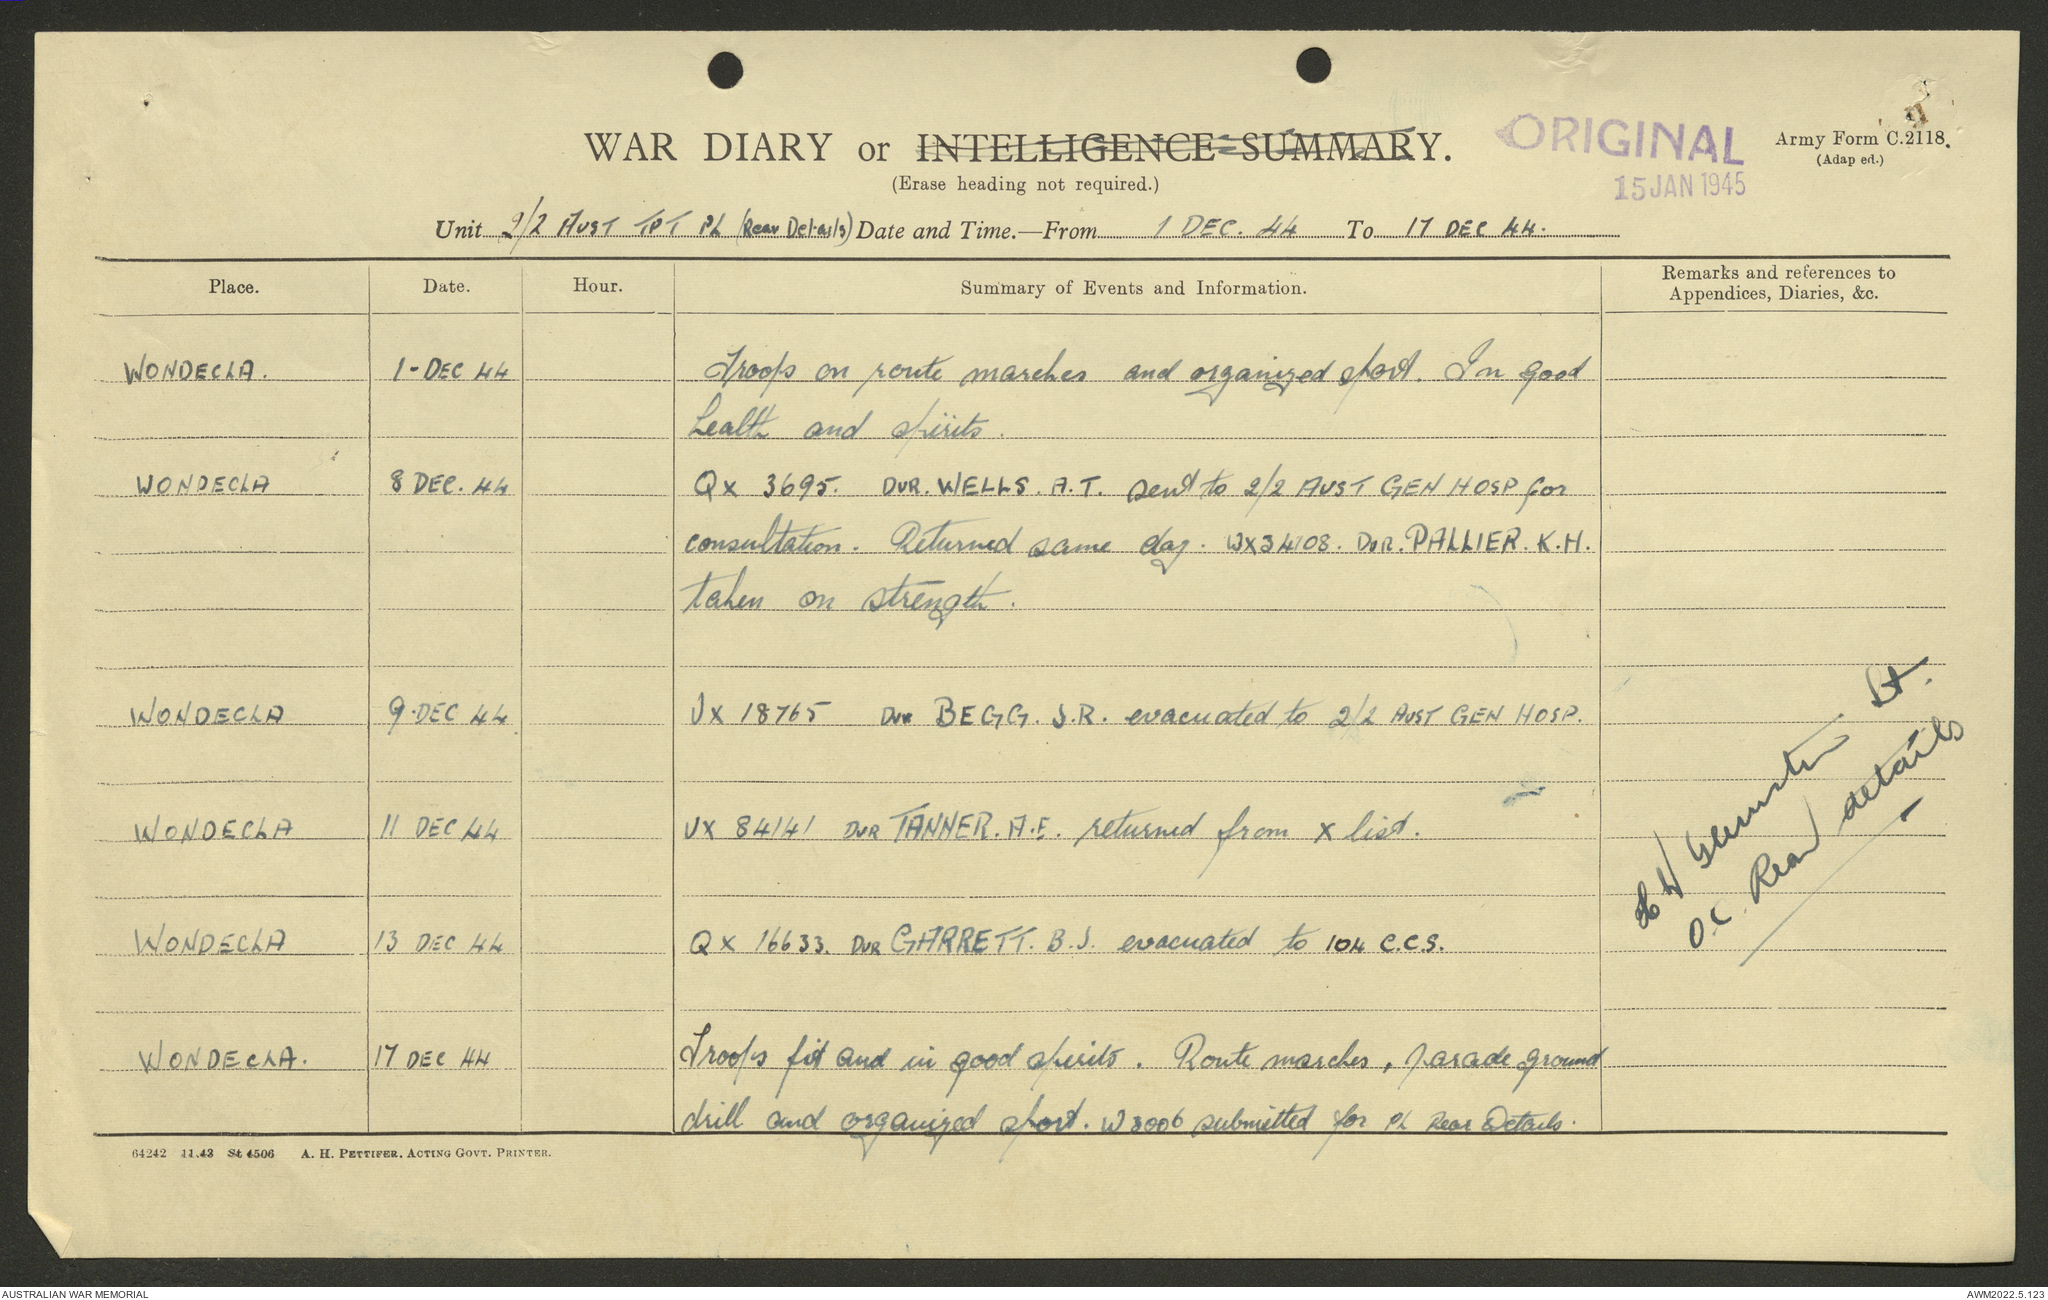 WAR DIARY or INTELLIGENCE SUMMARY.
(Erase heading not required.)
ORIGINAL
15 JAN 1945
Army Form C.2118.
(Adap ed.)
Unit 2/2 AUST TPT PL (Rear Details) Date and Time.—From 1 DEC. 44 To 17 DEC 44.
Place. Date. Hour. Summary of Events and Information. Remarks and references to
Appendices, Diaries, &c.
WONDECLA. 1-DEC 44 Troops on route marches and organized sport. In good
health and spirits.
WONDECLA 8 DEC. 44 QX 3695. DVR. WELLS. A.T. sent to 2/2 AUST GEN HOSP for
consultation. Returned same day. WX34108. DVR. PALLIER. K.H.
taken on strength.
WONDECLA 9.DEC 44 VX 18765 DVR BEGG. J.R. evacuated to 2/2 AUST GEN HOSP.
WONDECLA 11 DEC 44 VX 84141 DVR TANNER. A.E. returned from X list.
WONDECLA 13 DEC 44 QX 16633. DVR GARRETT. B.J. evacuated to 104 C.C.S.
WONDECLA. 17 DEC 44 Troops fit and in good spirits. Route marches, parade ground
drill and organized sport. W3006 submitted for PL Rear Details.
Lt.
O.C. Rear details
64242 11.43 St 4506 A. H. PETTIFER. ACTING GOVT. PRINTER.
AUSTRALIAN WAR MEMORIAL
AWM2022.5.123